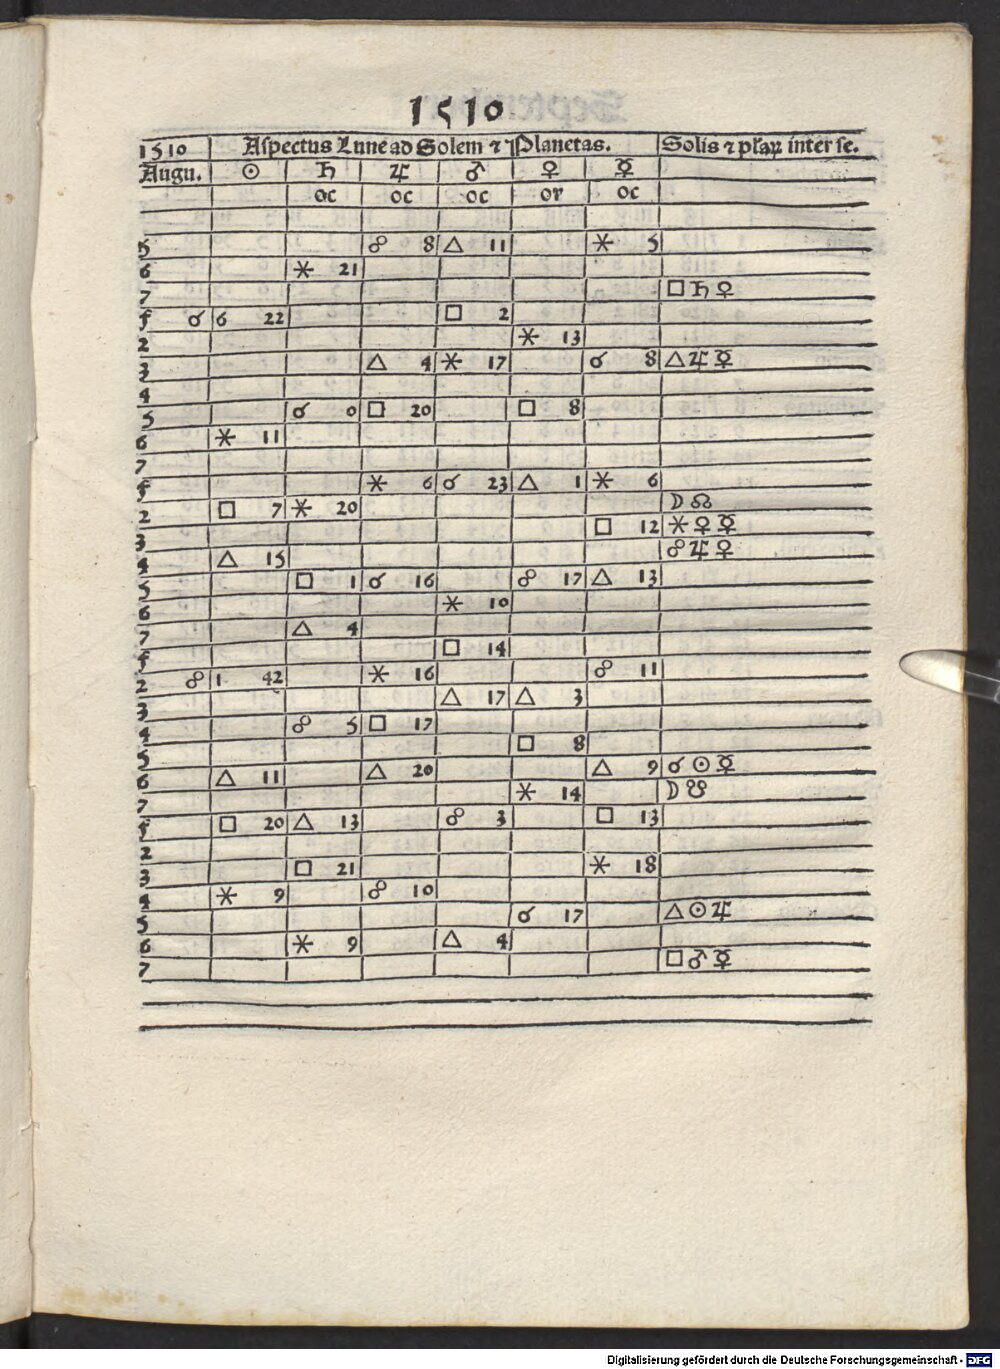 1510
1510 Aspectus Lune ad Solem ⁊ Planetas. Solis ⁊ płaꝝ inter se.
Augu. ☉ ♄ ♃ ♂ ♀ ☿
oc oc oc or oc
5 ☍ 8 △ 11 ⚹ 5
6 ⚹ 21
7 □ ♄ ♀
f ☌ 6 22 □ 2
2 ⚹ 13
3 △ 4 ⚹ 17 ☌ 8 △ ♃ ☿
4
5 ☌ 0 □ 20 □ 8
6 ⚹ 11
7
f ⚹ 6 ☌ 23 △ 1 ⚹ 6
2 □ 7 ⚹ 20 ☽ ☊
3 □ 12 ⚹ ♀ ☿
4 △ 15 ☍ ♃ ♀
5 □ 1 ☌ 16 ☍ 17 △ 13
6 ⚹ 10
7 △ 4
f □ 14
2 ☍ 1 42 ⚹ 16 ☍ 11
3 △ 17 △ 3
4 ☍ 5 □ 17
5 □ 8
6 △ 11 △ 20 △ 9 ☌ ☉ ☿
7 ⚹ 14 ☽ ☋
f □ 20 △ 13 ☍ 3 □ 13
2
3 □ 21 ⚹ 18
4 ⚹ 9 ☍ 10
5 ☌ 17 △ ☉ ♃
6 ⚹ 9 △ 4
7 □ ♂ ☿
Digitalisierung gefördert durch die Deutsche Forschungsgemeinschaft - DFG